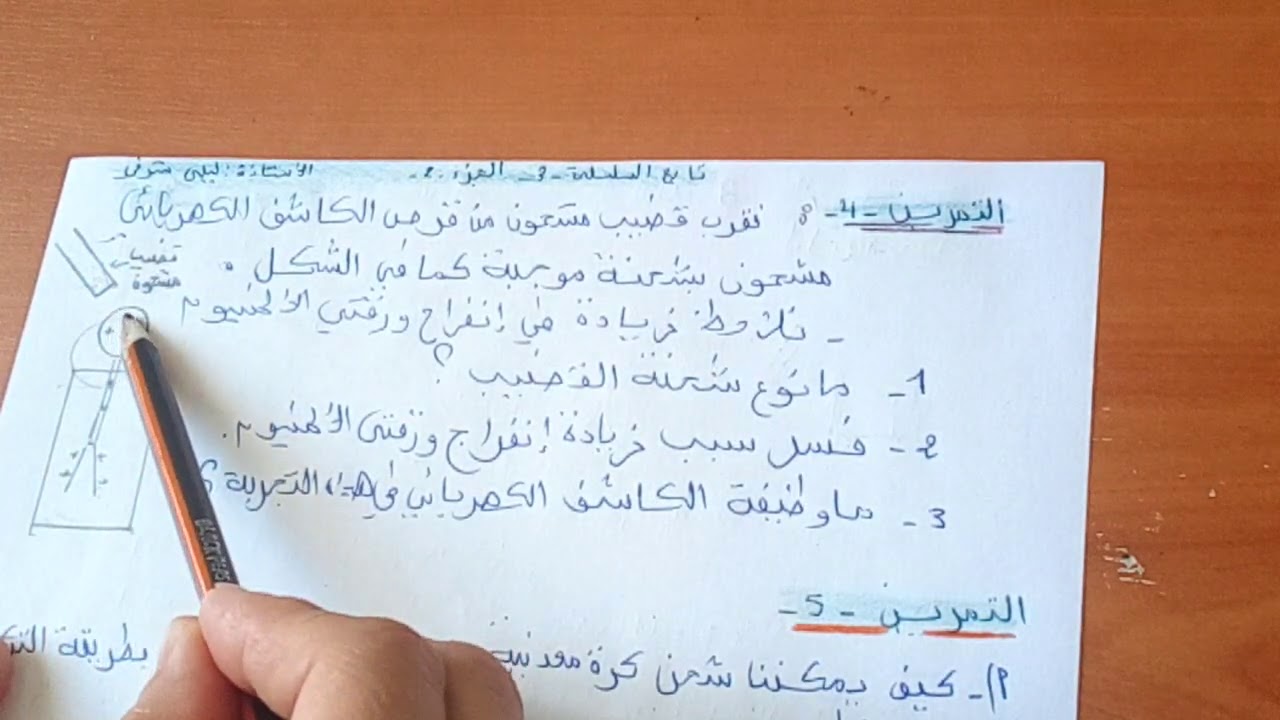 تابع السلسلة -3- الجزء -2- الأستاذة: ليلى
التمرين -4- : نقرب قضيب مشحون من قرص الكاشف الكهربائي
مشحون بشحنة موجبة كما في الشكل .
- نلاحظ زيادة في إنفراج ورقتي الألمنيوم
1- ما نوع شحنة القضيب ؟
2- فسر سبب زيادة إنفراج ورقتي الألمنيوم.
3- ما وظيفة الكاشف الكهربائي في هذه التجربة ؟
قضيب
مشحون
التمرين -5-
1)- كيف يمكننا شحن كرة معدنية بطريقة